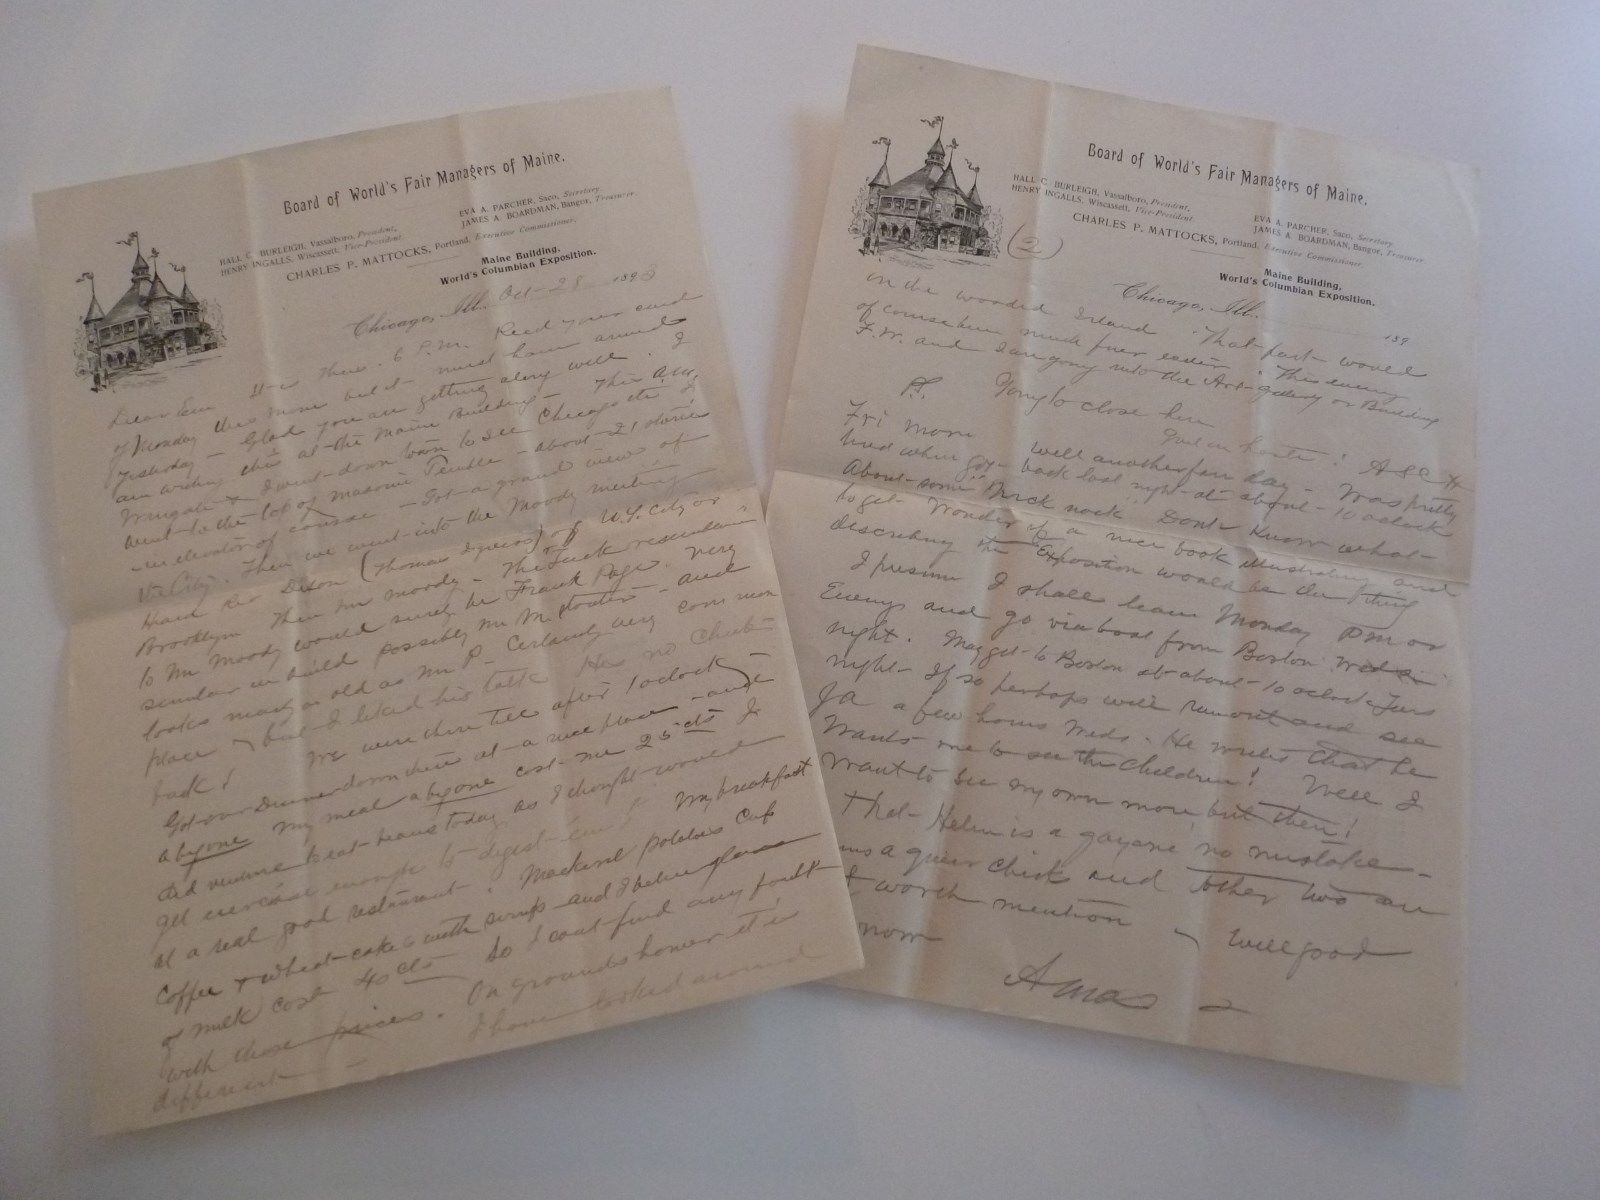 Board of World's Fair Managers of Maine.
HALL C. BURLEIGH, Vassalboro, President,
HENRY INGALLS, Wiscassett, Vice-President.
EVA A. PARCHER, Saco, Secretary.
JAMES A. BOARDMAN, Bangor, Treasurer.
CHARLES P. MATTOCKS, Portland, Executive Commissioner.
Maine Building,
World's Columbian Exposition.
Chicago, Ill. Oct-28 1893
Dear Em It is Thurs. 6 P.M. Recd your card
of Monday this morn but it must have arrived
yesterday - Glad you are getting along well. I
am writing this at the Maine Building - This A.M.
Wingate & I went down town to see Chicago etc I
went to the top of Masonic Temple - about 21 stories
in elevator of course - Got a grand view of
the City. Then we went into the Moody meeting
Heard Rev Dixon (Thomas I guess) of N.Y. City or
Brooklyn Then Mr Moody - The
to Mr Moody would surely be Frank Page. Very
similar in build possibly Mr M. stouter - and
looks as old as Mr P. Certainly very common
place - but I liked his talk Has no
back! We were there till after 1 oclock -
Got our dinner down there at a nice place - and
a byone my meal a byone cost me 25 cts I
did venture to eat beans today as I thought would
get exercise enough to digest 'em! My breakfast
at a real good restaurant. Mackerel potatoes cup
coffee & wheat-cakes with syrup and I believe glass
of milk cost 40 cts So I cant find any fault
with those prices. On grounds however it is
different - I have looked around
Board of World's Fair Managers of Maine.
HALL C. BURLEIGH, Vassalboro, President,
HENRY INGALLS, Wiscassett, Vice-President.
EVA A. PARCHER, Saco, Secretary.
JAMES A. BOARDMAN, Bangor, Treasurer.
CHARLES P. MATTOCKS, Portland, Executive Commissioner.
(2)
Maine Building,
World's Columbian Exposition.
Chicago, Ill. 189
on the wooded Island. That part would
of course been much finer earlier. This eveng
F.W. and I are going into the Art-gallery or Building
P.S. Going to close here
Fri morn Well another fair day - Was pretty
tired when got back last night at about 10 oclock
About some "Nick nack" Dont know what
to get Wonder if a nice book illustrating and
describing the Exposition would be the thing
I presume I shall leave Monday P.M. or
Eveng and go via boat from Boston
night. May get to Boston at about 10 oclock Tues
night - If so perhaps will and see
a few hours Weds. He writes that he
wants me to see the children! Well I
want to see my own more but then!
That Helen is a no mistake -
a queer chick and tother two are
worth mention - Well good
now
Amos